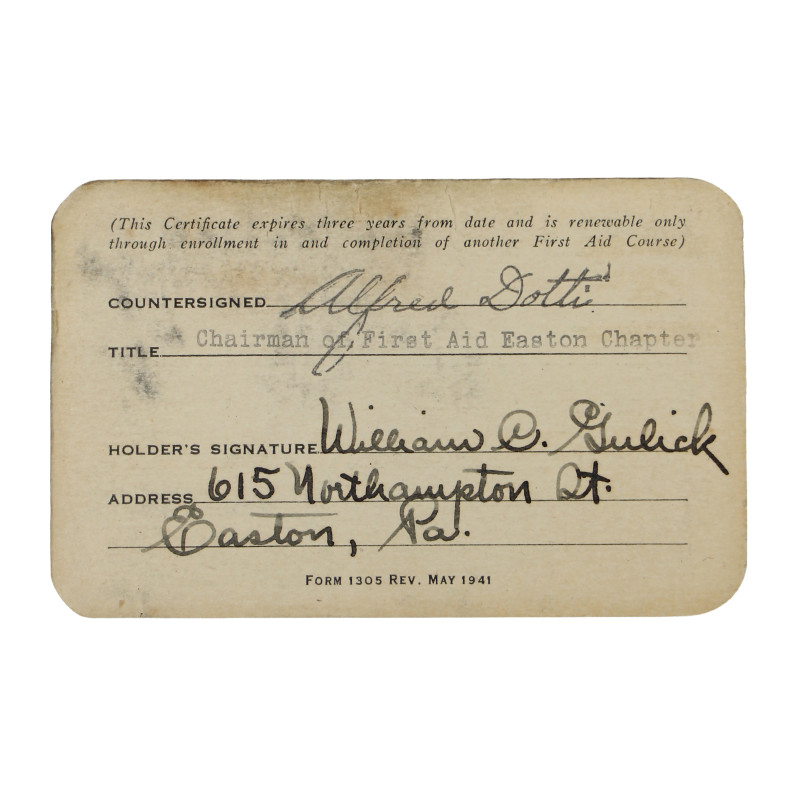 (This Certificate expires three years from date and is renewable only
through enrollment in and completion of another First Aid Course)
COUNTERSIGNED Alfred Dotti
TITLE Chairman of First Aid Easton Chapter
HOLDER'S SIGNATURE William C. Gulick
ADDRESS 615 Northampton St.
Easton, Pa.
FORM 1305 REV. MAY 1941